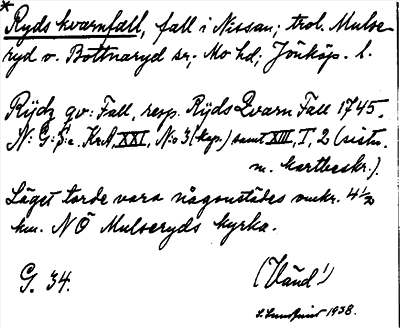 * Ryds kvarnfall, fall i Nissan; trol. Mulse-
ryd o. Bottnaryd sr; Mo hd; Jönköp. l.
Rÿdz qv: Fall, resp. Rÿds Qvarn Fall 1745.
N: G: S:a. KrA XXI, N:o 3 (kap.) samt XIII, I, 2 (sistn.
m. kartbeskr.).
Läget torde vara någonstädes omkr. 4 1/2
km. NÖ Mulseryds kyrka.
G. 34.
(Vänd!)
1938.